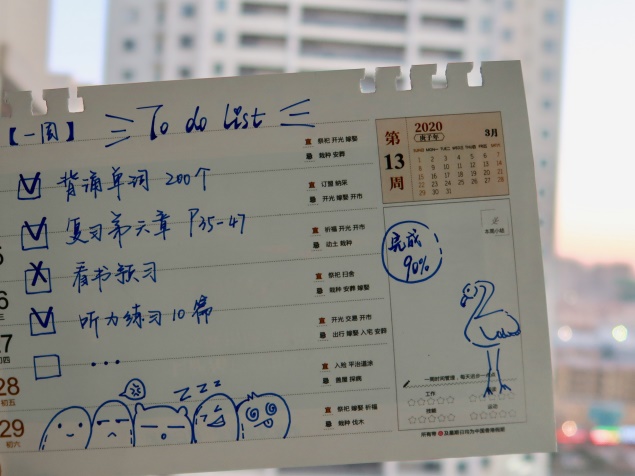 【一周】 To do list
背诵单词 200个
复习第六章 P35-47
看书预习
听力练习10篇
...
z z z
完成
90%
第
13
周
2020
庚子年
3月
SUN MON TUE WED THU FRI SAT
1 2 3 4 5 6 7
8 9 10 11 12 13 14
15 16 17 18 19 20 21
22 23 24 25 26 27 28
29 30 31
宜 祭祀 开光 嫁娶
忌 栽种 安葬
宜 订盟 纳采
忌 开光 嫁娶 开市
宜 祈福 开光 开市
忌 动土 栽种
宜 祭祀 扫舍
忌 栽种 安葬 嫁娶
宜 开光 交易 开市
忌 出行 嫁娶 入宅 安葬
宜 入殓 平治道涂
忌 探病
宜 祭祀 嫁娶 祈福
忌 栽种 伐木
28
初五
29
初六
本周小结
工作
技能
运动